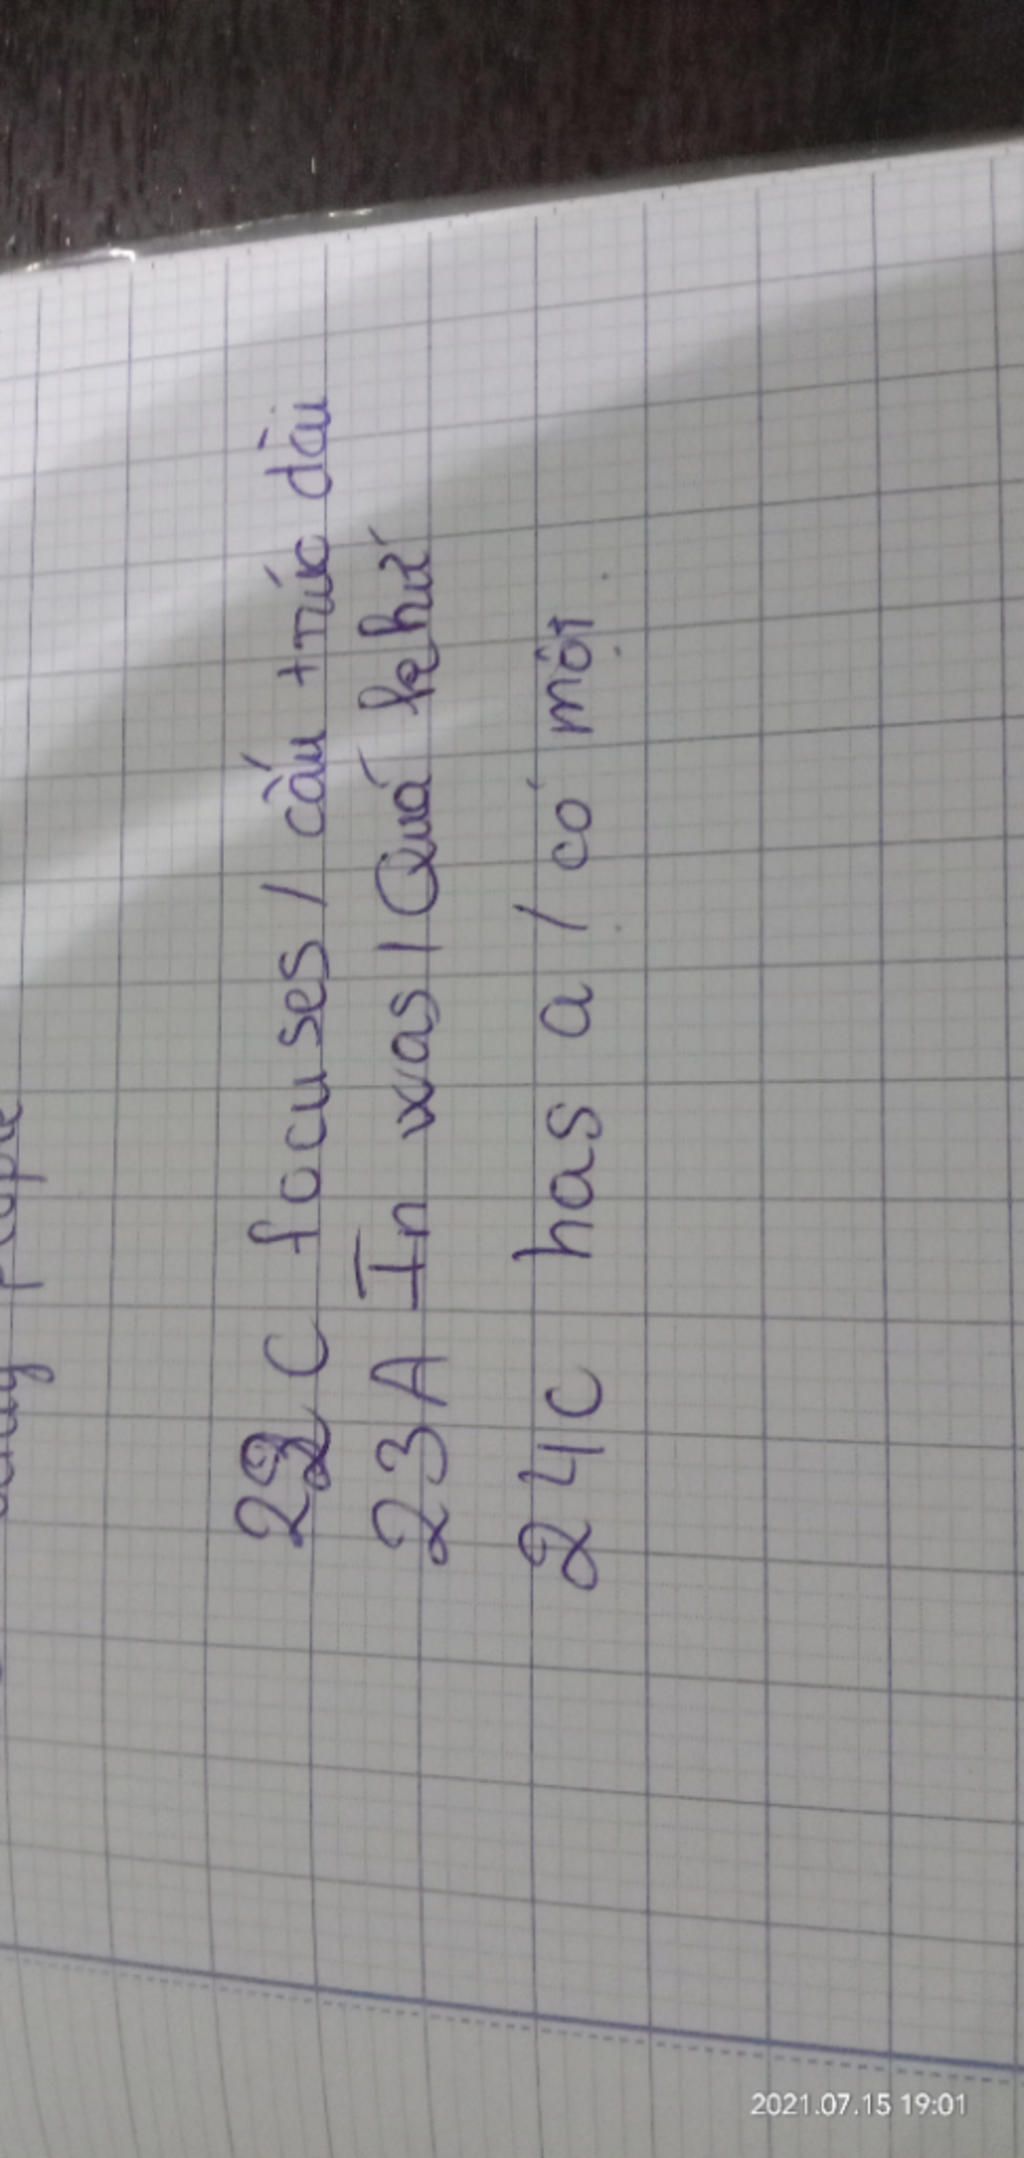 people
22 C focuses / cấu trúc dài
23 A In was / Quá khứ
24 C has a / có một
2021.07.15 19:01